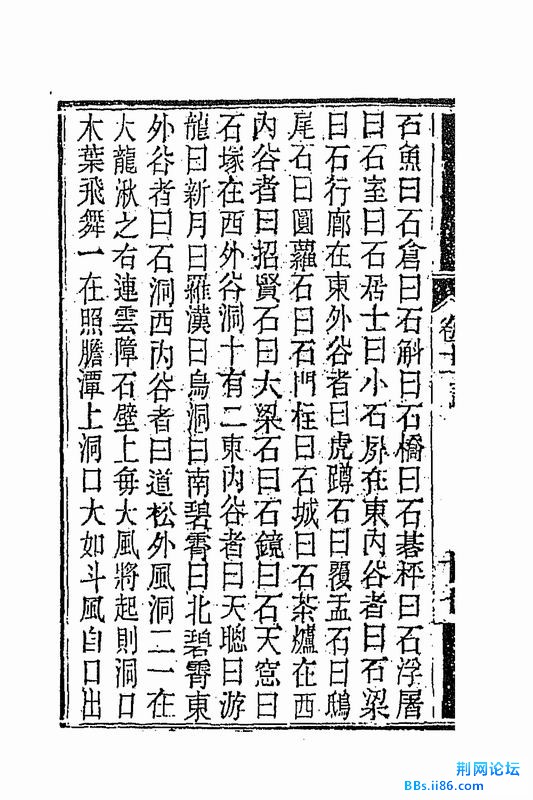 石魚曰石倉曰石斛曰石橋曰石碁枰曰石浮屠
曰石室曰石居士曰小石屏在東內谷者曰石梁
曰石行廊在東外谷者曰虎蹲石曰覆盂石曰鴟
尾石曰圓蘿石曰石門柱曰石城曰石茶爐在西
內谷者曰招賢石曰大梁石曰石鏡曰石天窓曰
石塚在西外谷洞十有二東內谷者曰天聰曰游
龍曰新月曰羅漢曰鳥洞曰南碧霄曰北碧霄東
外谷者曰石洞西內谷者曰道松外風洞二一在
大龍湫之右連雲障石壁上每大風將起則洞口
木葉飛舞一在照膽潭上洞口大如斗風自口出
卷十一
荆网论坛
BBs.ii86.com